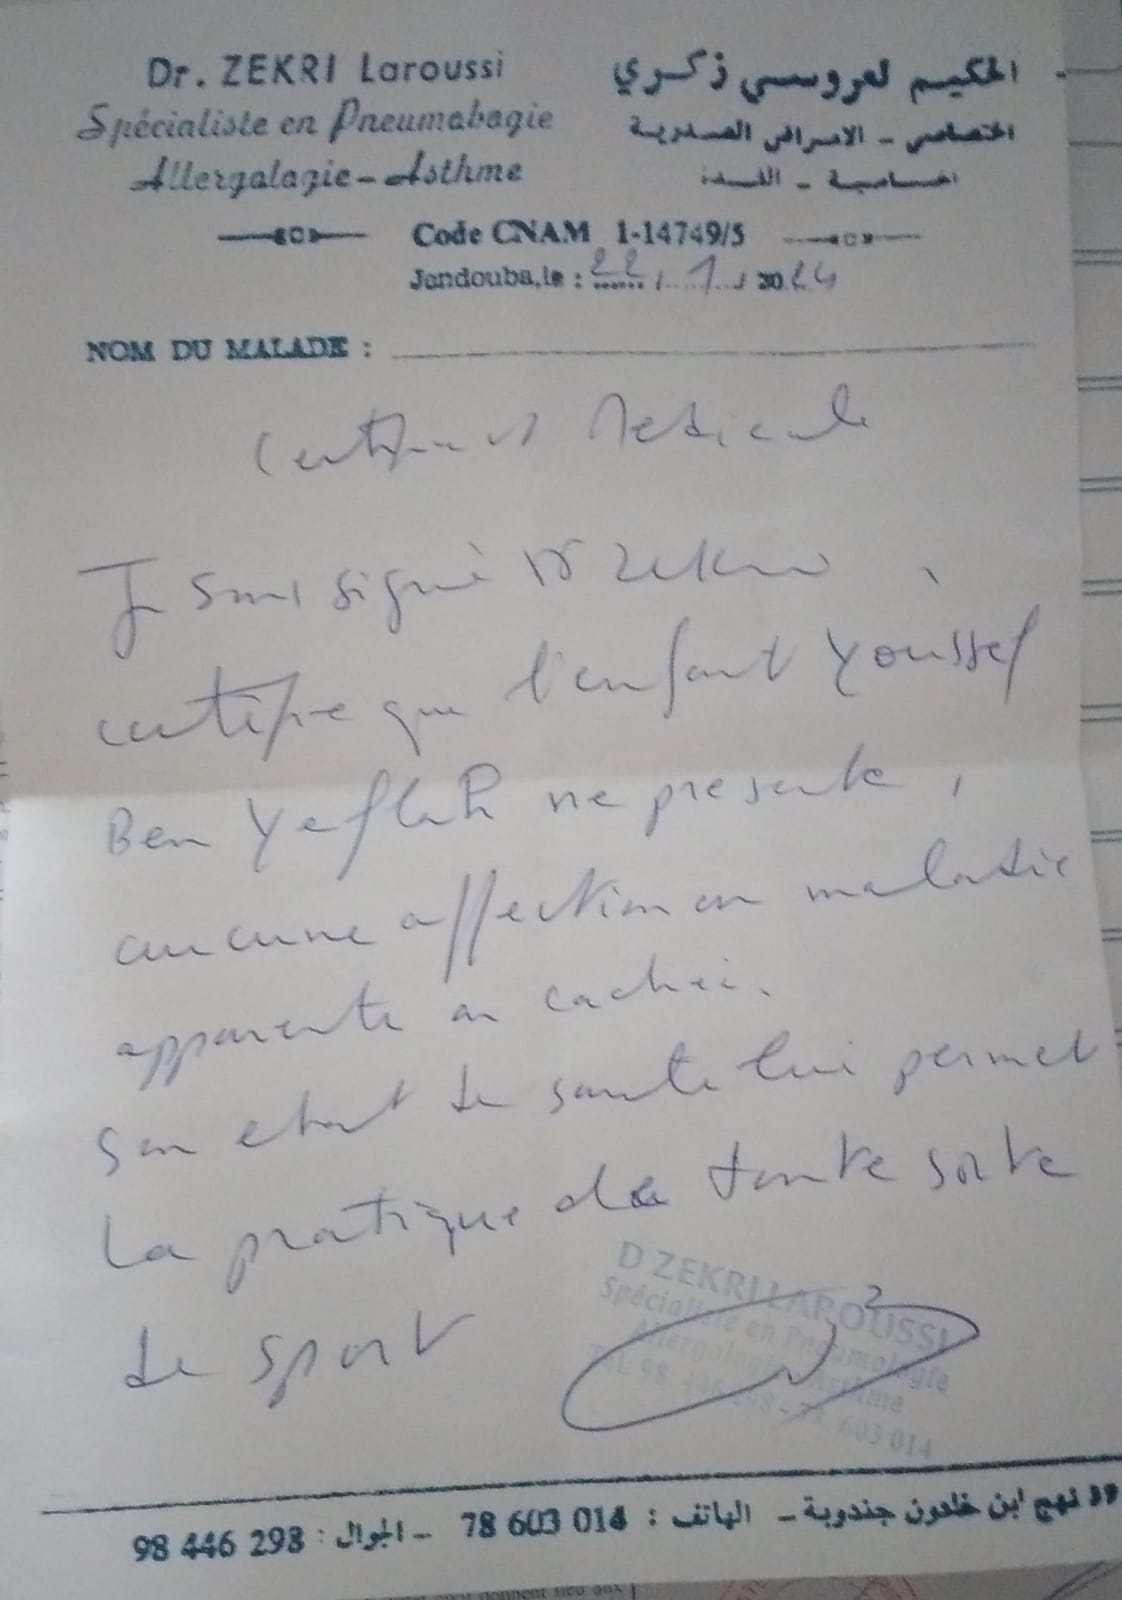 Dr. ZEKRI Laroussi
Spécialiste en Pneumabagie
Allergalagie - Asthme
الحكيم لعروسي زكري
اختصاصي - الامراض الصدرية
احساسية - الفدة
Code CNAM 1-14749/5
Jendouba, le : 22 / 1 / 2024
NOM DU MALADE :
Certificat Medicale
Je sous signé Dr Zekri
certifie que l'enfant Youssef
Ben Yeflah ne presente
aucune affection ou maladie
apparente ou cachée.
Son etat de sante lui permet
la pratique de toute sorte
de sport
D ZEKRI LAROUSSI
Spécialiste en Pneumologie
Allergologie Asthme
Tél: 98 446 298 - 78 603 014
نهج ابن خلدون جندوبة - الهاتف : 78 603 014 - الجوال : 98 446 298